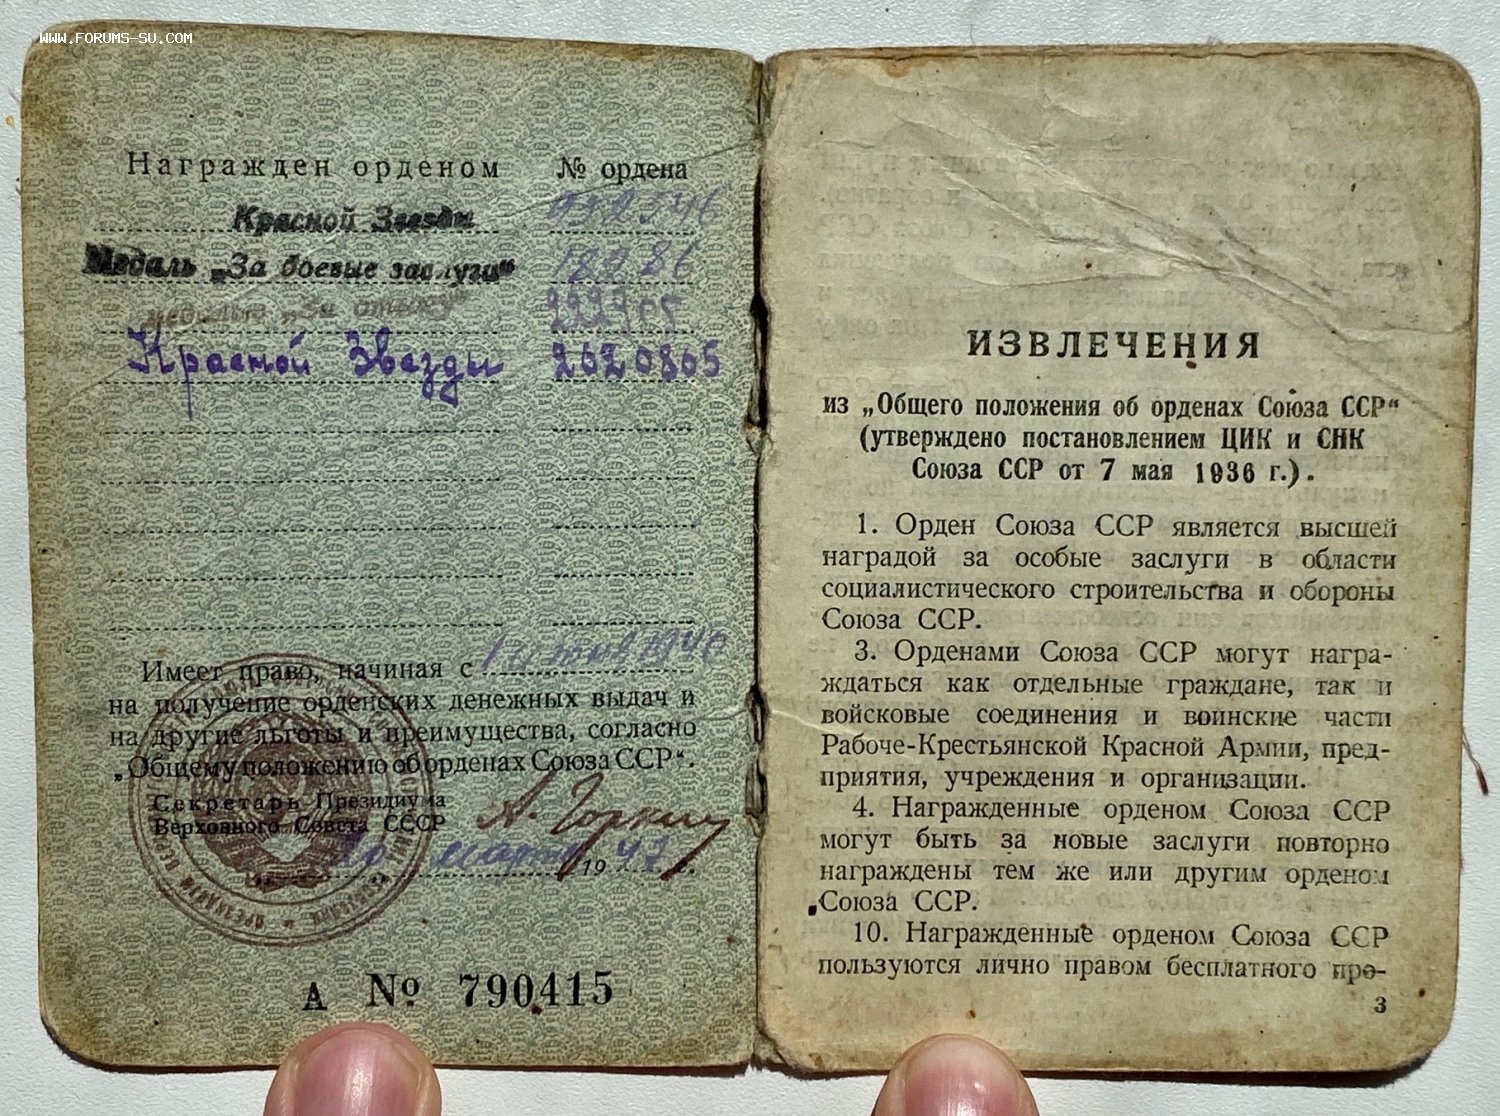 WWW.FORUMS-SU.COM
Награжден орденом № ордена
Красной Звезды
Медаль „За боевые заслуги“
медалью „За отвагу“
Красной Звезды 2620865
Имеет право, начиная с
на получение орденских денежных выдач и
на другие льготы и преимущества, согласно
„Общему положению об орденах Союза ССР“.
Секретарь Президиума
Верховного Совета СССР
марта 19 47
А № 790415
ИЗВЛЕЧЕНИЯ
из „Общего положения об орденах Союза ССР“
(утверждено постановлением ЦИК и СНК
Союза ССР от 7 мая 1936 г.).
1. Орден Союза ССР является высшей
наградой за особые заслуги в области
социалистического строительства и обороны
Союза ССР.
3. Орденами Союза ССР могут награ-
ждаться как отдельные граждане, так и
войсковые соединения и воинские части
Рабоче-Крестьянской Красной Армии, пред-
приятия, учреждения и организации.
4. Награжденные орденом Союза ССР
могут быть за новые заслуги повторно
награждены тем же или другим орденом
Союза ССР.
10. Награжденные орденом Союза ССР
пользуются лично правом бесплатного про-
3